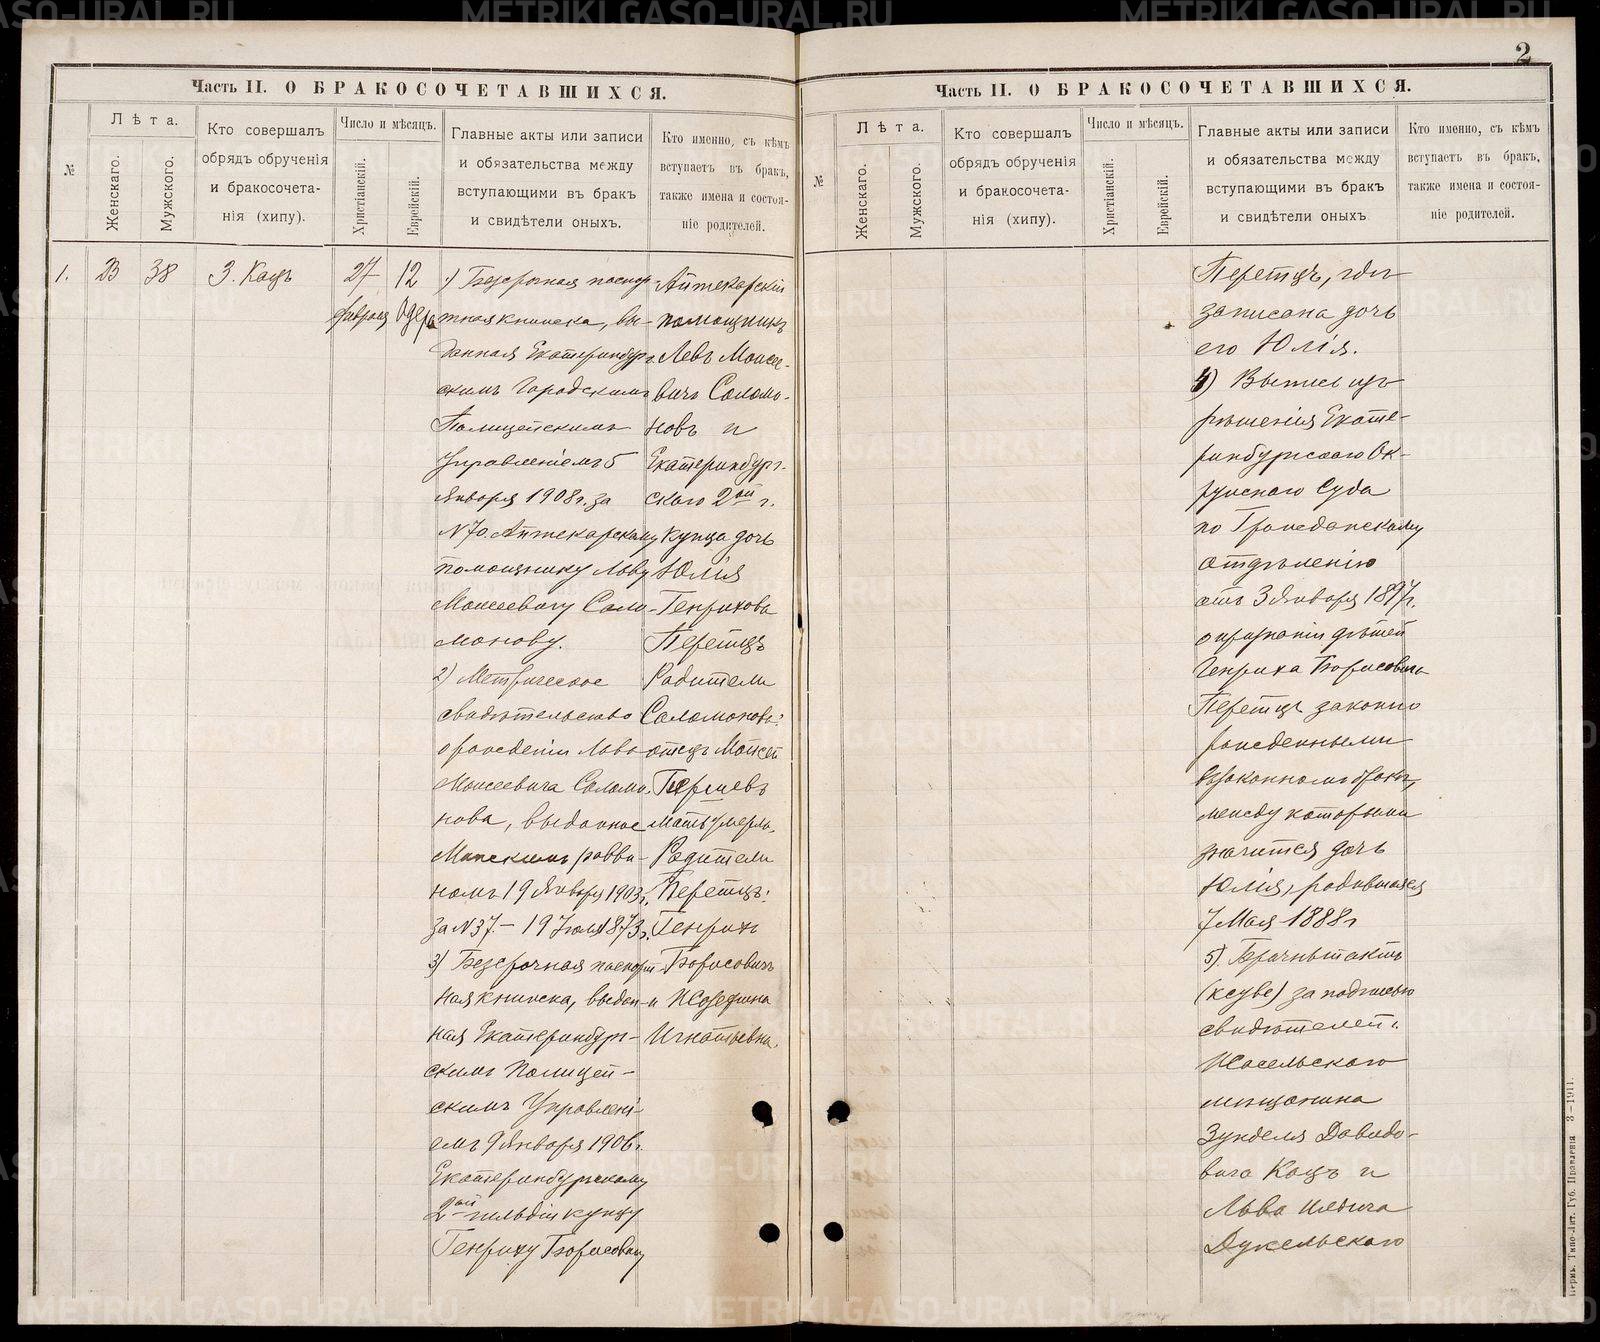 2
Часть II. О БРАКОСОЧЕТАВШИХСЯ.
№
Лѣта.
Женскаго.
Мужского.
Кто совершалъ
обрядъ обрученія
и бракосочета-
нія (хипу).
Число и мѣсяцъ.
Христіанскій.
Еврейскій.
Главные акты или записи
и обязательства между
вступающими въ бракъ
и свидѣтели оныхъ.
Кто именно, съ кѣмъ
вступаетъ въ бракъ,
также имена и состоя-
ніе родителей.
1.
23
38
З. Кацъ
27
февраля
12
Одера
1) Безсрочная паспор-
тная книжка, вы-
данная Екатеринбург-
скимъ Городскимъ
Полицейскимъ
Управленіемъ 5
Января 1908 г. за
№ 70. Аптекарскому
помощнику Льву
Моисеевичу Соло-
монову.
2) Метрическое
свидѣтельство
о рожденіи Льва
Моисеевича Соломо-
нова, выданное
раввино-
номъ 19 Января 1903 г.
за № 37. – 19 Іюля 1873 г.
3) Безсрочная паспорт-
ная книжка, выдан-
ная Екатеринбург-
скимъ Полицей-
скимъ Управлені-
емъ 9 Января 1906 г.
Екатеринбургскому
2ой гильдіи купцу
Генриху Борисовичу
Аптекарскій
помощникъ
Левъ Моисее-
вичъ Соломо-
новъ и
Екатеринбург-
скаго 2ой г.
купца дочь
Юлія
Генрихова
Перетцъ
Родители
Соломонова:
отецъ Моисей
мать умерла.
Родители
Перетцъ:
Генрихъ
Борисовичъ
и Жозефина
Игнатьевна.
Часть II. О БРАКОСОЧЕТАВШИХСЯ.
№
Лѣта.
Женскаго.
Мужского.
Кто совершалъ
обрядъ обрученія
и бракосочета-
нія (хипу)
Число и мѣсяцъ.
Христіанскій.
Еврейскій.
Главные акты или записи
и обязательства между
вступающими въ бракъ
и свидѣтели оныхъ
Кто именно, съ кѣмъ
вступаетъ въ бракъ,
также имена и состоя-
ніе родителей.
Перетцъ, гдѣ
записана дочь
его Юлія.
4) Выпись изъ
рѣшенія Екате-
ринбургскаго Ок-
ружнаго Суда
по Гражданскому
отдѣленію
отъ 3 Января 1897 г.
о признаніи дѣтей
Генриха Борисовича
Перетцъ законно
рожденными
въ законномъ бракѣ,
между которыми
значится дочь
Юлія, родившаяся
7 Мая 1888 г
5) Брачный актъ
(ксубе) за подписью
свидѣтелей:
мѣщанина
Зунделя Давидо-
вича Кацъ и
Льва Ильича
Дукельскаго
Пермь. Типо-Лит. Губ. Правленія 3–1911.
METRIKI.GASO-URAL.RU